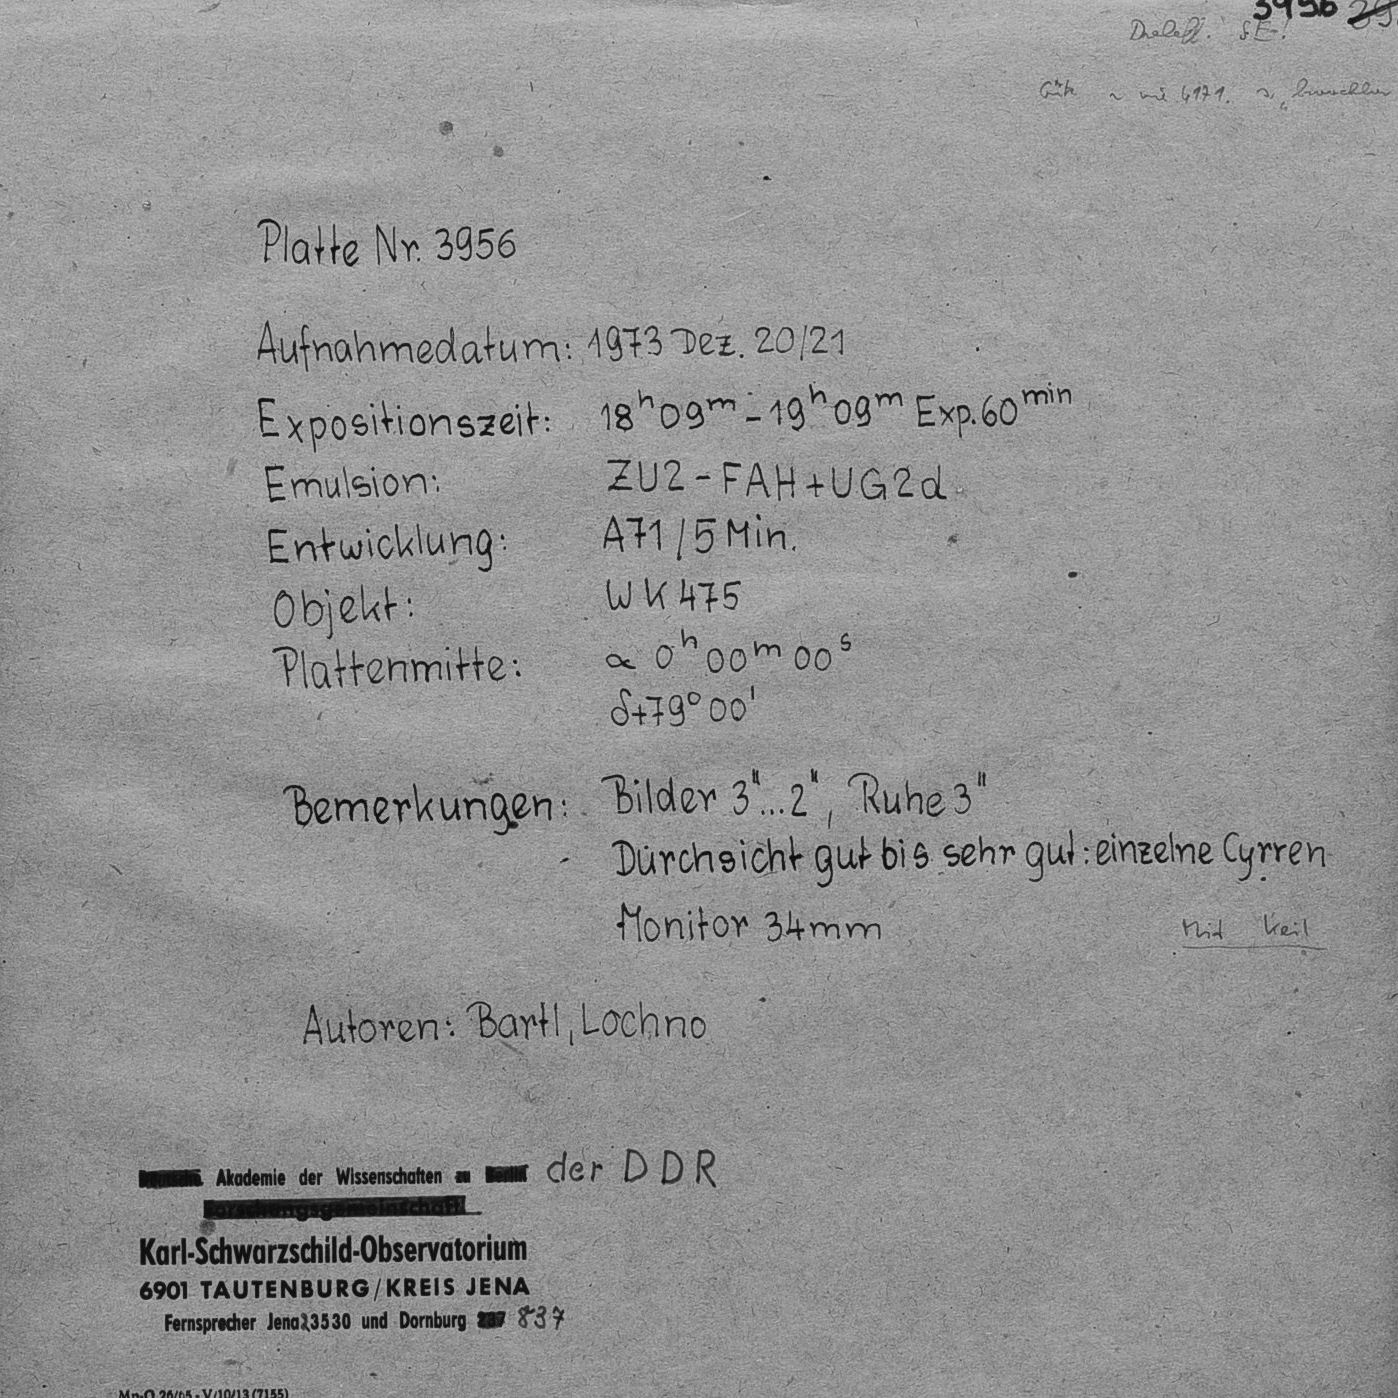 3956
Güte ~ wie 4171.
Platte Nr. 3956
Aufnahmedatum: 1973 Dez. 20/21
Expositionszeit: 18ʰ09ᵐ - 19ʰ09ᵐ Exp. 60ᵐⁱⁿ
Emulsion: ZU2 - FAH + UG2d
Entwicklung: A71 / 5 Min.
Objekt: WK 475
Plattenmitte: α 0ʰ 00ᵐ 00ˢ
δ+79° 00'
Bemerkungen: Bilder 3"...2", Ruhe 3"
Durchsicht gut bis sehr gut: einzelne Cyrren
Monitor 34mm
Mit Keil
Autoren: Bartl, Lochno
Akademie der Wissenschaften zu der DDR
Forschungsgemeinschaft
Karl-Schwarzschild-Observatorium
6901 TAUTENBURG/KREIS JENA
Fernsprecher Jena 23530 und Dornburg 837